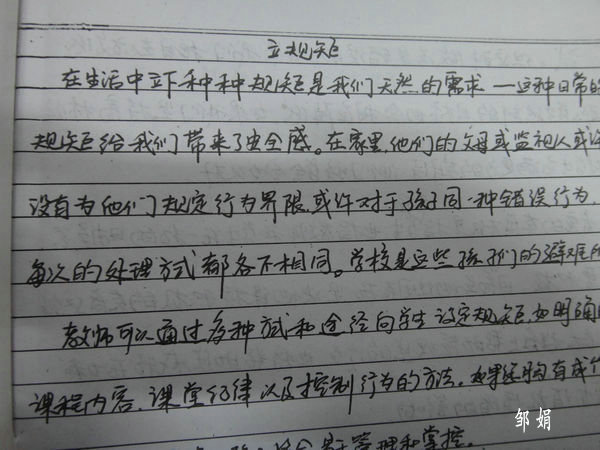 立规矩
在生活中立下种种规矩是我们天然的需求——这种日常的
规矩给我们带来了安全感。在家里,他们的父母或监视人或许
没有为他们规定行为界限,或许对于孩子同一种错误行为,
每次的处理方式都各不相同。学校是这些孩子们的避难所
教师可以通过多种方式和途径向学生设定规矩,如明确的
课程内容、课堂纪律以及控制行为的方法。如果
管理和掌控。
邹娟